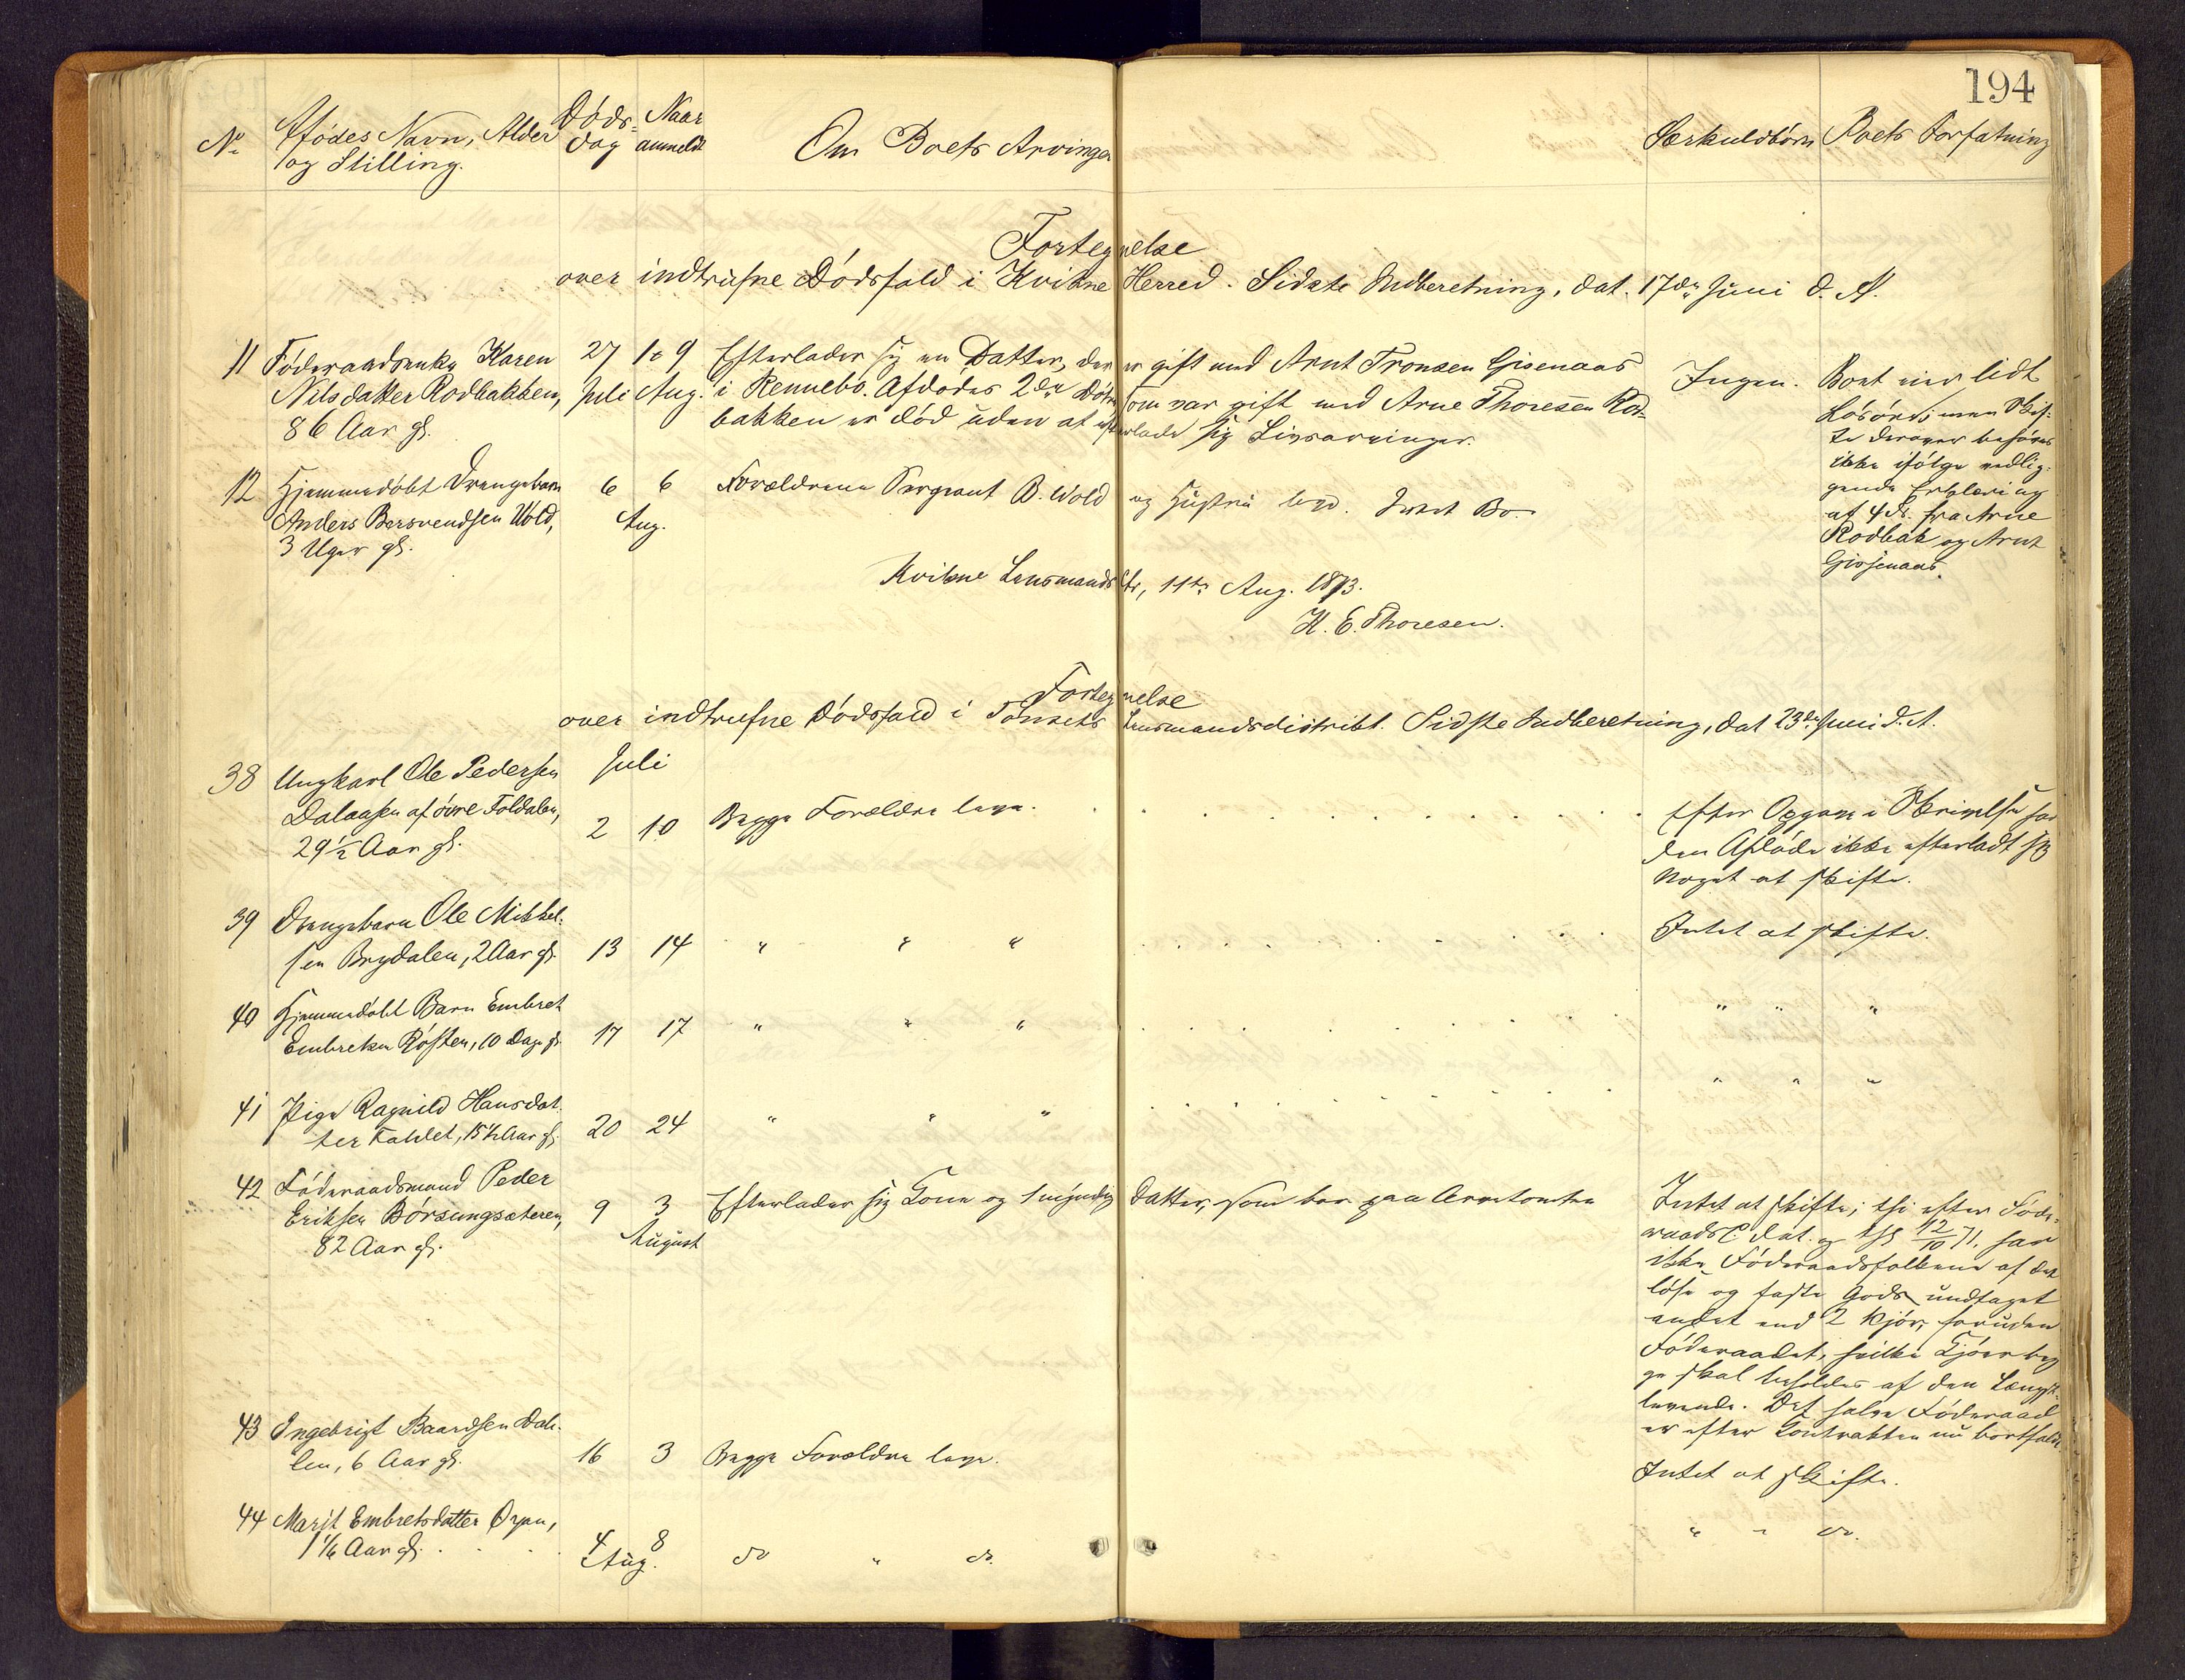 194
No Afdødes Navn, Alder og Stilling. Døds-dag Naar anmeldt Om Boets Arvinger Særkuldbørn Boets Forfatning
Fortegnelse
over indtrufne Dødsfald i Kvikne Herred. Sidste Indberetning, dat. 17de Juni d. A.
11 Føderaadsenke Karen 27 10 9 Efterlader sig en Datter, der er gift med Arnt Tronsen Gisenaas Ingen.
Nilsdatter Rodbakken, Juli Aug. i Rennebo. Afdødes 2den Datter som var gift med Arne Thoresen Rod-
86 Aar gl. bakken er død uden at efterlade sig Livsarvinger.
Boet eier lidt
Løsøre; men Skif-
te derover behøves
ikke ifølge vedlig-
gende Erklæring
af 4 ds. fra Arne
Rodbak og Arnt
Gisenaas.
12 Hjemmedøbt Drengebarn 6 6 Forældrene Sergeant B. Wold og Hustru leve. Intet Bo.
Anders Bersvendsen Wold, Aug.
3 Uger gl.
Kvikne Lensmands, 11te Aug. 1873.
H. E. Thoresen.
Fortegnelse
over indtrufne Dødsfald i Tønsets Lensmandsdistrikt. Sidste Indberetning, dat 23de Juni d. A.
Juli
38 Ungkarl Ole Pedersen
Dalaasen af øvre Foldalen, 2 10 Begge Forældre leve.
29½ Aar gl.
Efter Opgave i Skrivelse har
den Afdøde ikke efterladt sig
noget at skifte.
39 Drengebarn Ole Mikkel-
sen Brydalen, 2 Aar gl. 13 14 " " " Intet at skifte.
40 Hjemmedøbt Barn Embret
Embretsen Røsten, 10 Dage gl. 17 17 " " " " " "
41 Pige Ragnild Hansdat-
ter, 15½ Aar gl. 20 24 " " " " " "
42 Føderaadsmand Peder
Eriksen Børsungsæteren, 9 3 Efterlader sig Kone og 1 myndig Datter, som bor paa Arvetomten
82 Aar gl. August
Intet at skifte; thi efter Føde-
raadsC. dat. og thgl 12/10 71. har
ikke Føderaadsfolkene af det
løse og faste Gods undtaget
andet end 2 Kjør, foruden
Føderaadet, hvilke Kjør beg-
ge skal beholdes af den Længst-
levende. Det halve Føderaad
er efter Kontrakten nu bortfaldt.
43 Ingebrigt Baardsen Dah-
len, 6 Aar gl. 16 3 Begge Forældre leve. Intet at skifte.
44 Marit Embretsdatter Øyen,
1 1/6 Aar gl. 4 Aug. 8 do " do. " " do.